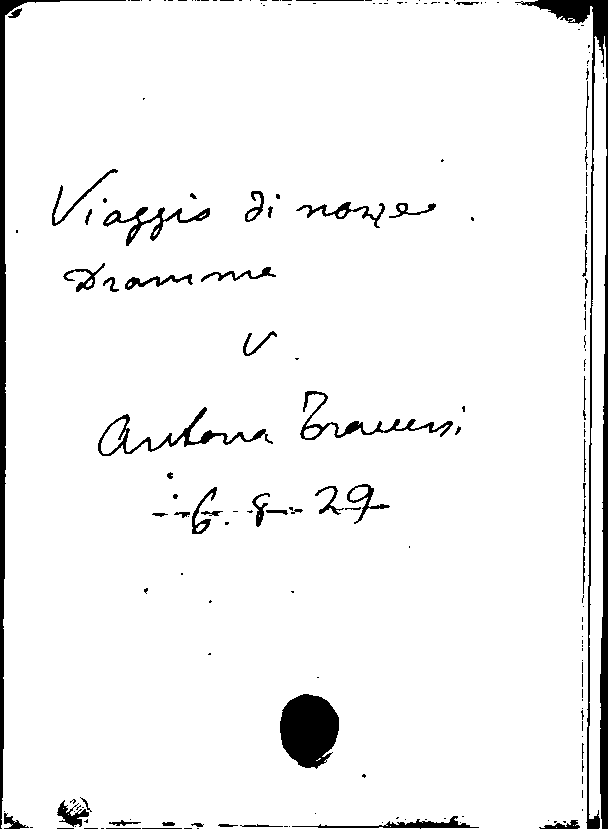 Viaggio di nozze.
Dramma
v.
Antona Traversi
6. 8. 29